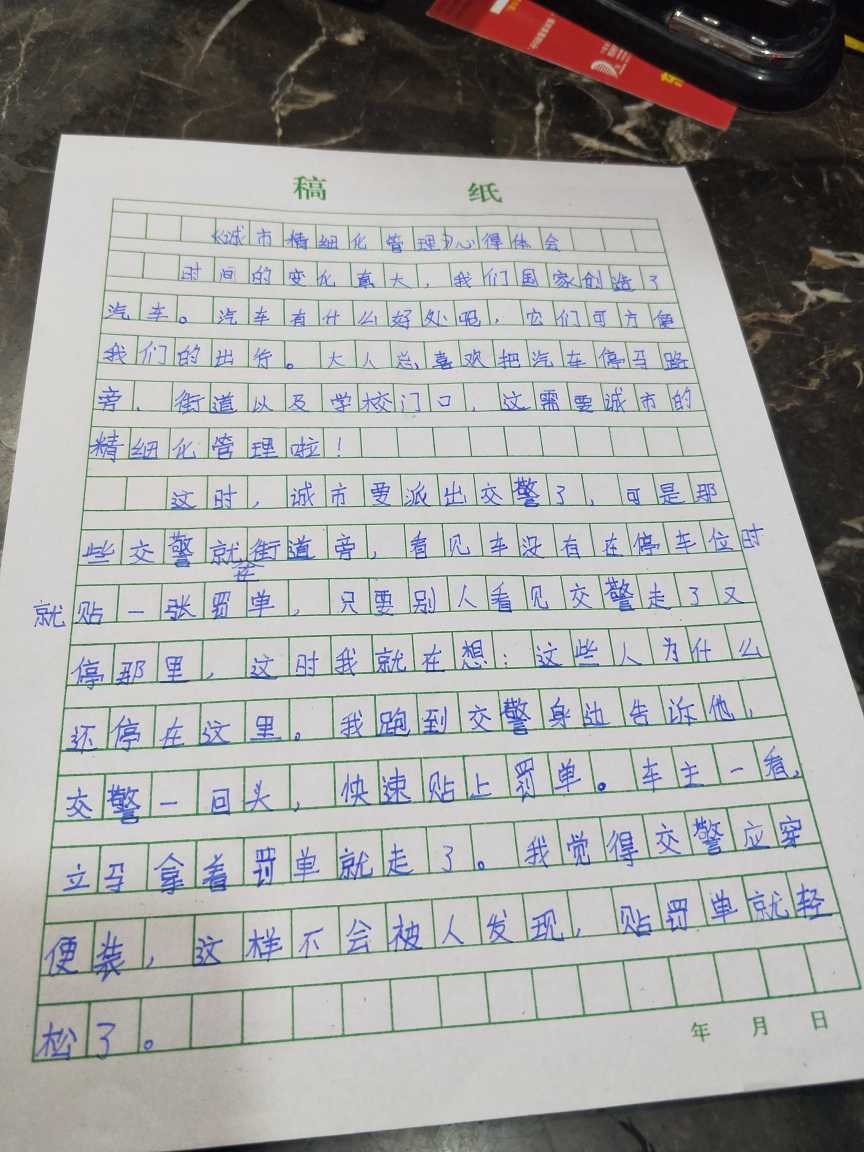 稿 纸
《诚市精细化管理》心得体会
时间的变化真大，我们国家创造了
汽车。汽车有什么好处呢，它们可方便
我们的出行。大人总喜欢把汽车停马路
旁、街道以及学校门口，这需要诚市的
精细化管理啦！
这时，诚市要派出交警了，可是那
些交警就在街道旁，看见车没有在停车位时
就贴一张罚单，只要别人看见交警走了又
停那里，这时我就在想：这些人为什么
还停在这里。我跑到交警身边告诉他，
交警一回头，快速贴上罚单。车主一看，
立马拿着罚单就走了。我觉得交警应穿
便装，这样不会被人发现，贴罚单就轻
松了。
年 月 日